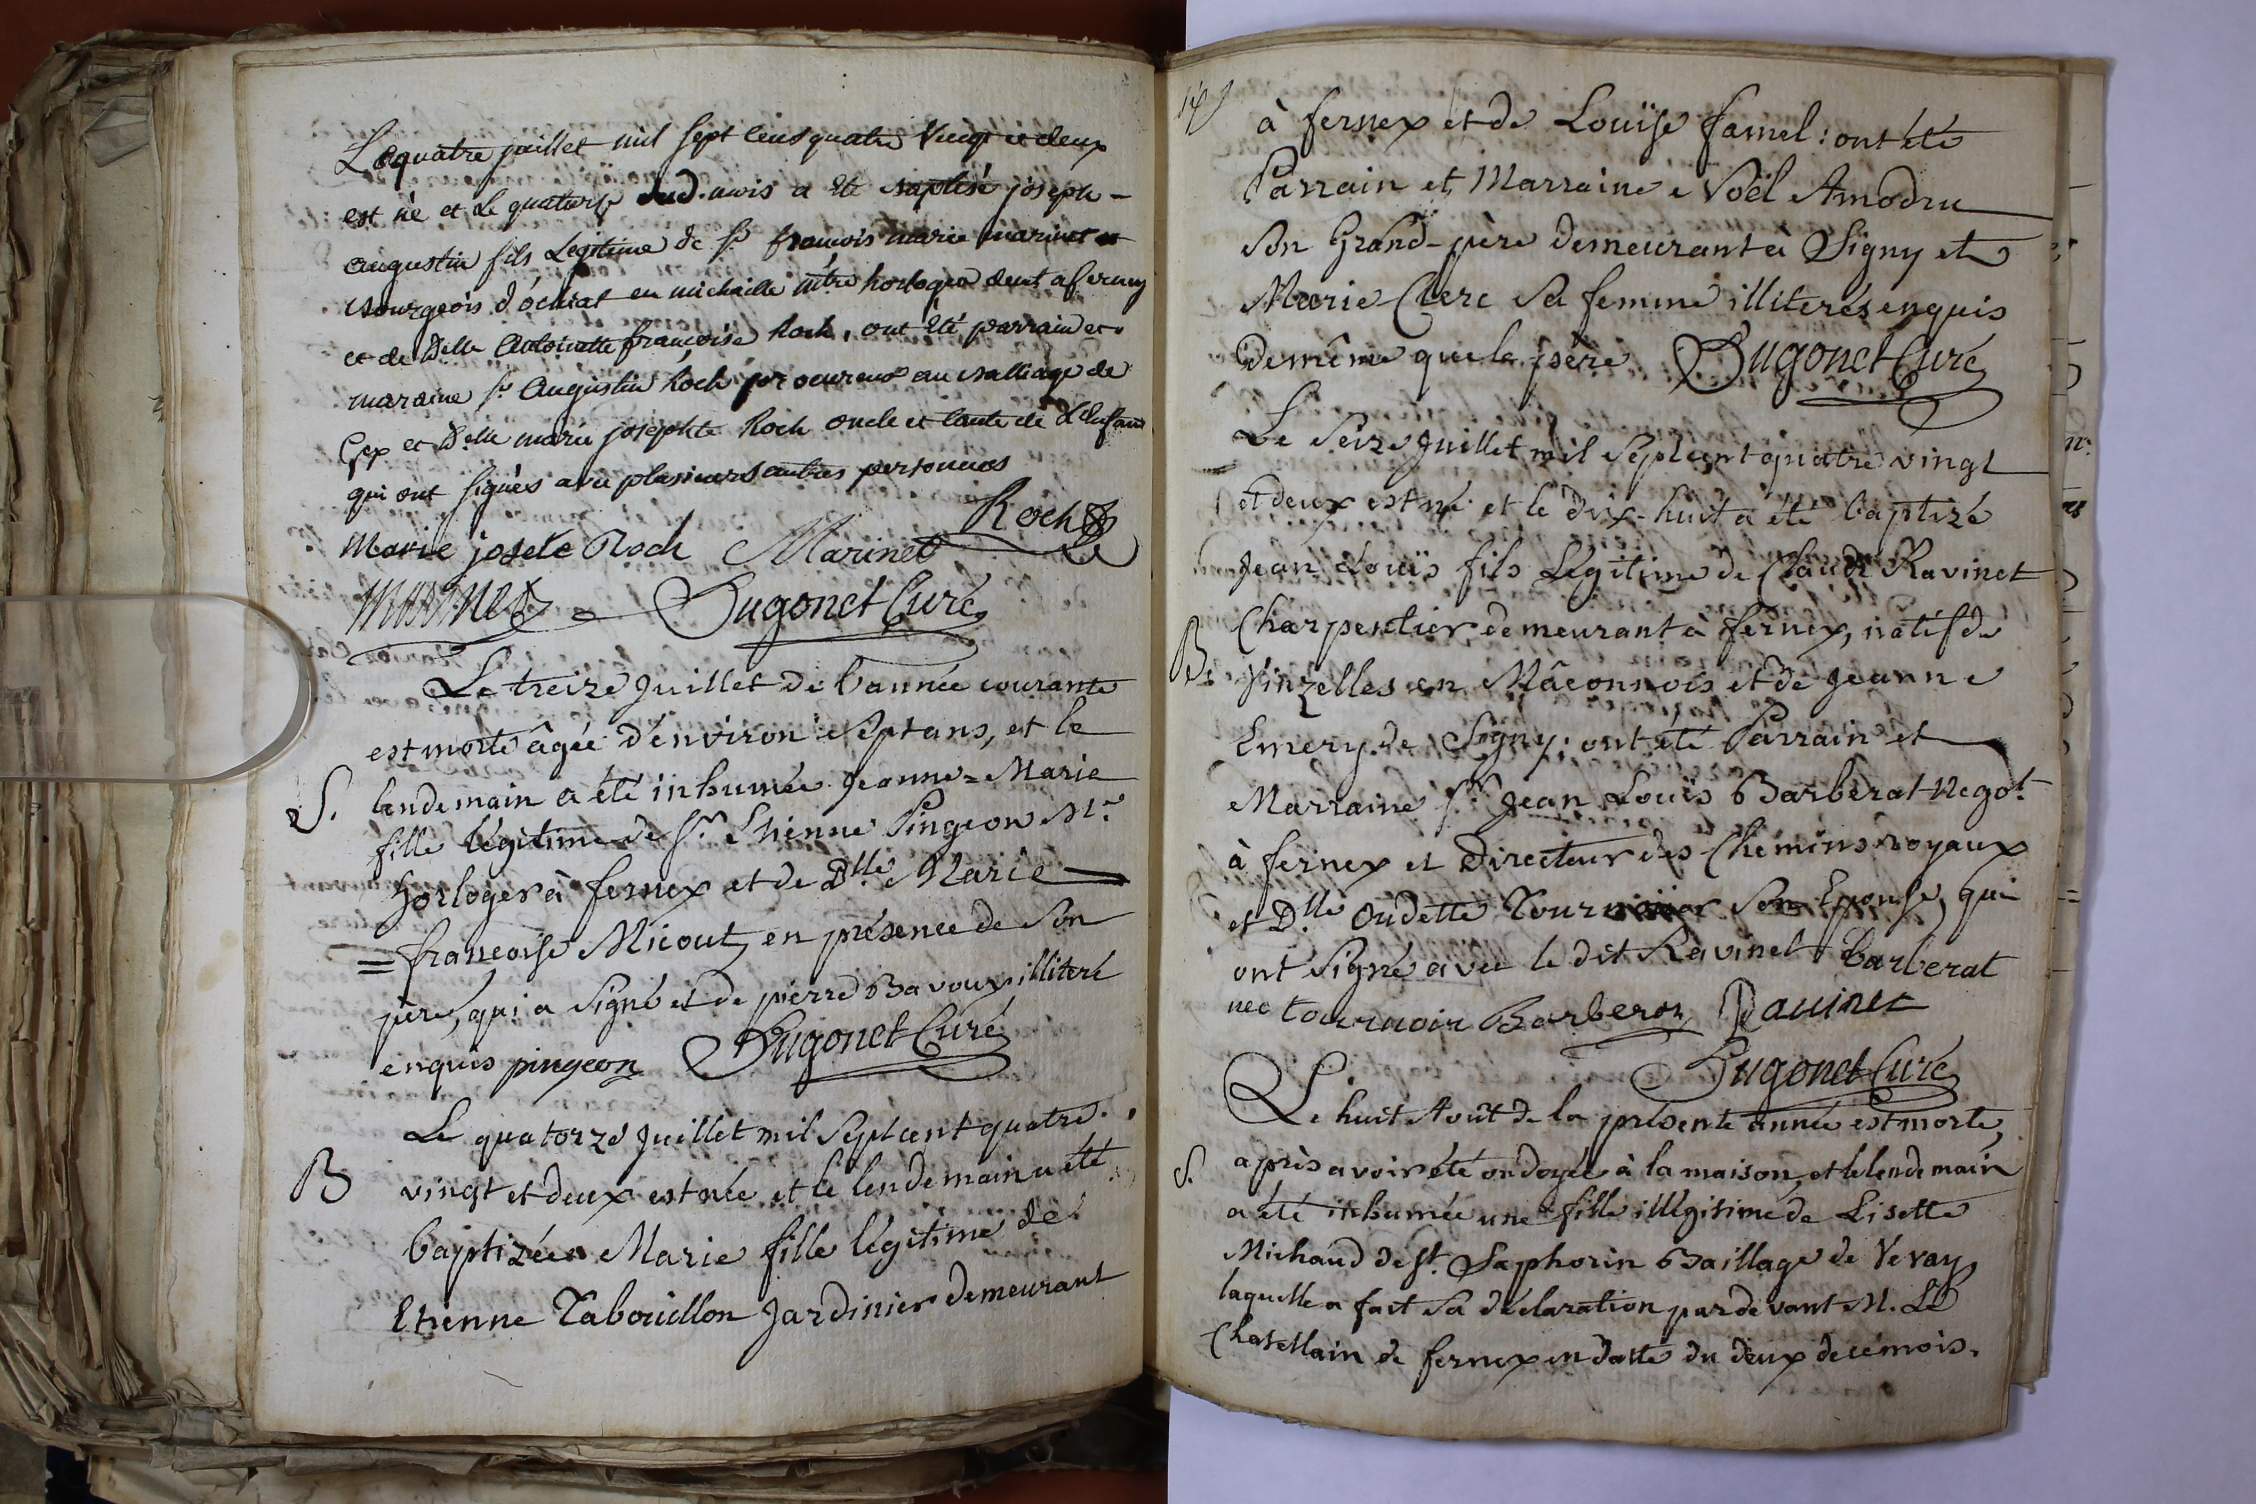 Le quatre juillet mil sept cens quatre vingt et deux
est né et le quatorse dud. mois a été baptisé joseph-
augustin fils Legitime de Sr. françois marie marinet
bourgeois d'ochiat en michaille mtre horloger demt a ferney
et de Delle Antoinette françoise Roch, ont été parrain et
maraine Sr. Augustin Roch procureur au balliage de
Gex et Delle marie josephte Roch oncle et tante de L'Enfant
qui ont signés avec plusieurs autres personnes
Roch
Marie josete Roch Marinet
Dugonet Curé
Le treize Juillet de l'année courante
est morte âgée d'environ sept ans, et le
S. lendemain a été inhumée Jeanne=Marie
fille légitime de Sr. Etienne Pingeon Me.
horloger à fernex et de Dlle Marie
= francoise Micout, en présence de Son
père, qui a Signé et de pierre Bavoux illiteré
enquis pingeon Dugonet Curé
Le quatorze Juillet mil Sept cent quatre
B vingt et deux est née et le lendemain a été
baptizée Marie fille légitime de
Etienne Tabouillon Jardinier demeurant
à fernex et de Louïse famel : ont été
Parrain et Marraine Noël Amodru
Son Grand-père demeurant à Signy et
Marie Clerc Sa femme illiterés enquis
de même que le père Dugonet Curé
Le Seize Juillet mil Sept cent quatre vingt
et deux est né et le dix-huit a été baptizé
Jean Louïs fils Légitime de Claude Ravinet
Charpentier demeurant à fernex, natif de
B. Vinzelles en Mâconnois et de Jeanne
Emery de Signy : ont été Parrain et
Marraine Sr. Jean Louïs Barberat Negot.
à fernex et Directeur des Chemins royaux
et Dlle Oudette Son Epouse, qui
ont Signé avec le dit Ravinet Barberat
nee tournoir Barberon Ravinet
Dugonet Curé
Le huit Août de la présente année est morte,
S. après avoir été ondoyée à la maison, et le lendemain
a été inhumée une fille illégitime de Lisette
Michaud de St. Saphorin Baillage de Vevay,
laquelle a fait Sa déclaration pardevant M. Le
Chatellain de fernex en datte du deux de ce mois.